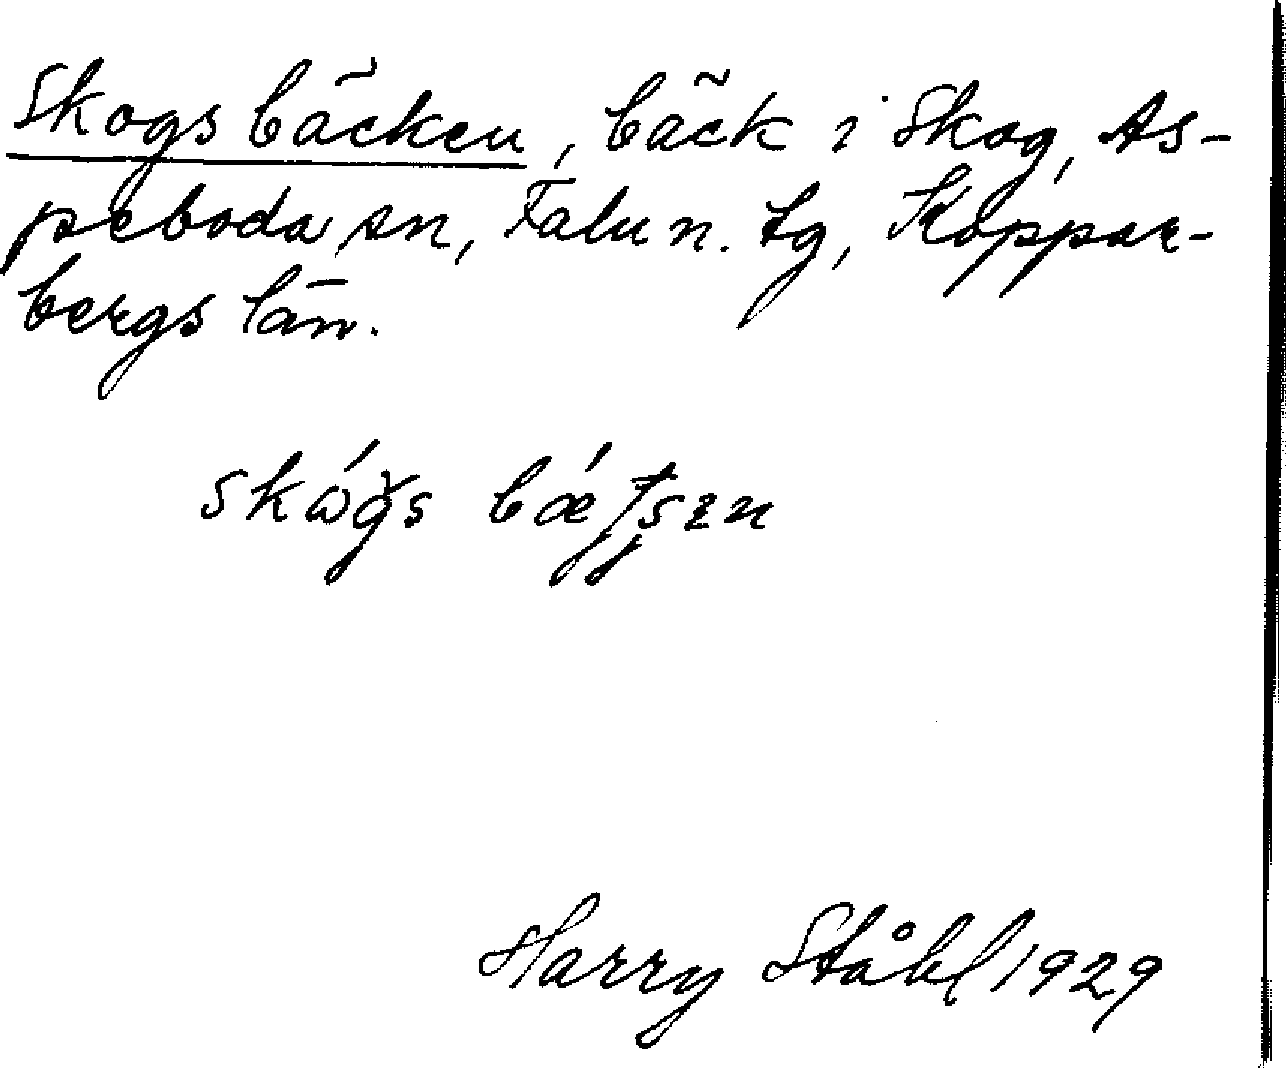 Skogsbäcken, bäck i Skog, As-
peboda sn, Falu n. tg, Koppar-
bergs län.
Harry Ståhl 1929